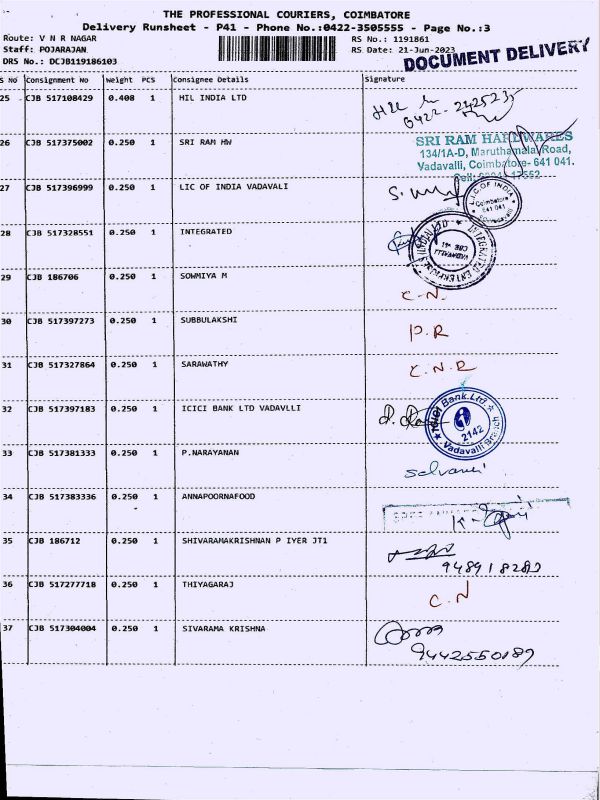 THE PROFESSIONAL COURIERS, COIMBATORE
Delivery Runsheet - P41 - Phone No.:0422-3505555 - Page No.:3
Route: V N R NAGAR RS No.: 1191861
Staff: POJARAJAN RS Date: 21-Jun-2023
DRS No.: DCJB119186103 DOCUMENT DELIVERY
S No Consignment No Weight PCS Consignee Details Signature
25 CJB 517108429 0.408 1 HIL INDIA LTD
26 CJB 517375002 0.250 1 SRI RAM HW SRI RAM HARDWARES
134/1A-D, Maruthamalai Road,
Vadavalli, Coimbatore- 641 041.
27 CJB 517396999 0.250 1 LIC OF INDIA VADAVALI L.I.C OF INDIA
Coimbatore
641 041
28 CJB 517328551 0.250 1 INTEGRATED
VADAVALLI
CBE -41
29 CJB 186706 0.250 1 SOWMIYA M C.N.
30 CJB 517397273 0.250 1 SUBBULAKSHI P.R
31 CJB 517327864 0.250 1 SARAWATHY C.N.R
32 CJB 517397183 0.250 1 ICICI BANK LTD VADAVLLI ICICI Bank.Ltd.
2142
Vadavalli Branch
33 CJB 517381333 0.250 1 P.NARAYANAN
34 CJB 517383336 0.250 1 ANNAPOORNAFOOD
35 CJB 186712 0.250 1 SHIVARAMAKRISHNAN P IYER JT1
36 CJB 517277718 0.250 1 THIYAGARAJ C.N
37 CJB 517304004 0.250 1 SIVARAMA KRISHNA
9442550189